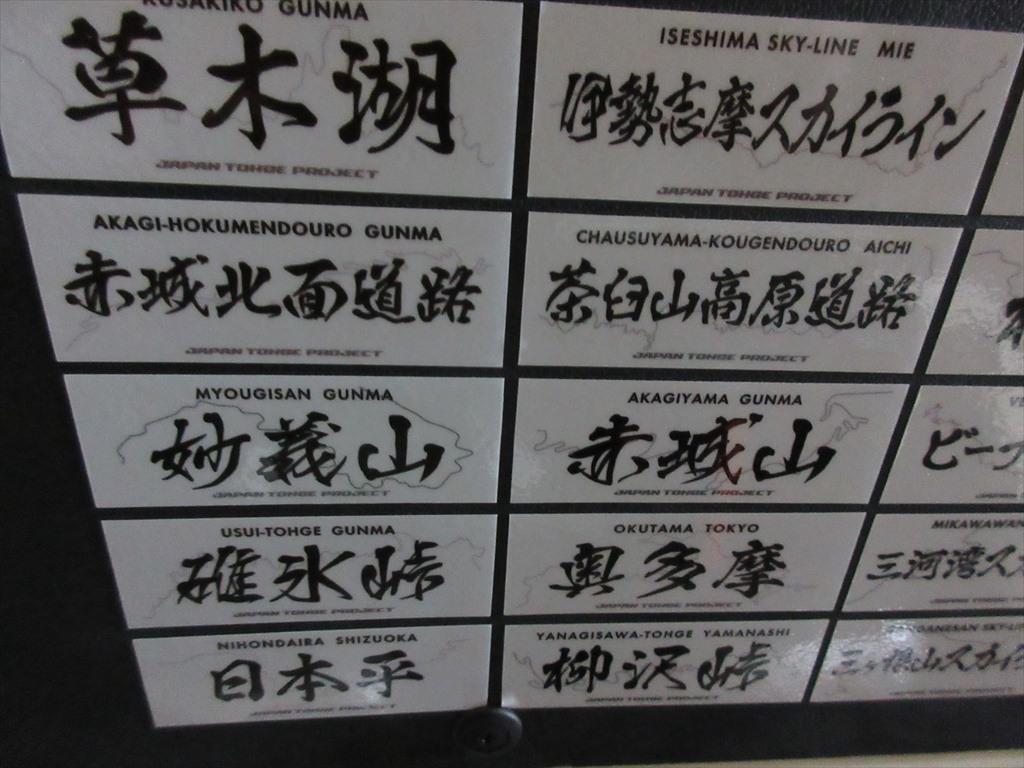 KUSAKIKO GUNMA
草木湖
JAPAN TOHGE PROJECT
ISESHIMA SKY-LINE MIE
伊勢志摩スカイライン
JAPAN TOHGE PROJECT
AKAGI-HOKUMENDOURO GUNMA
赤城北面道路
JAPAN TOHGE PROJECT
CHAUSUYAMA-KOUGENDOURO AICHI
茶臼山高原道路
JAPAN TOHGE PROJECT
MYOUGISAN GUNMA
妙義山
JAPAN TOHGE PROJECT
AKAGIYAMA GUNMA
赤城山
JAPAN TOHGE PROJECT
ビーナ
JAPAN
USUI-TOHGE GUNMA
碓氷峠
JAPAN TOHGE PROJECT
OKUTAMA TOKYO
奥多摩
JAPAN TOHGE PROJECT
MIKAWAWAN
三河湾ス
NIHONDAIRA SHIZUOKA
日本平
JAPAN TOHGE PROJECT
YANAGISAWA-TOHGE YAMANASHI
柳沢峠
JAPAN TOHGE PROJECT
GANESAN SKY-LIN
三ヶ根山スカイ